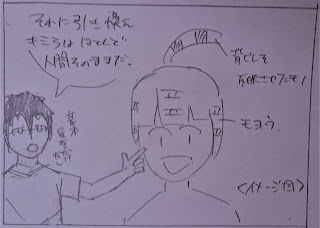 それに引き換え
キミらは ほとんど
人間そのままだ。
背ビレを
反映させたモノ
モヨウ
<イメージ図>